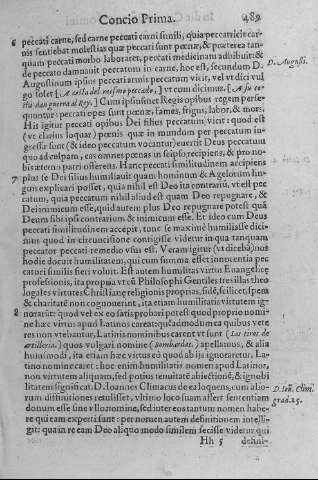 Concio Prima. 489
6 peccati carne, sed carne peccati carni simili, quia peccatricie carnis
nis sentiebat molestias quæ peccati sunt pœnæ, & præterea tanquam
quam peccati morbo laboraret, peccati medicinam adhibuit: &
de peccato damnauit peccatum in carne, hoc est, secundum D.
D. Augusti.
Augustinum ipsius peccati armis peccatum vicit, vel vt dici vulgo
go solet [A testa del mesmo peccado,] vt cum dicimus [A su costa
da guerra el Rey.] Cum ipsius met Regis opibus regem persequuntur:
quuntur: peccati opes sunt pœnæ, fames, frigus, labor, & mors.
His igitur peccati opibus Dei filius peccatum vicit: quod est
(vt clarius loquar) pœnis quæ in mundum per peccatum ingressæ
gressæ sunt (& ideo peccatum vocantur) euertit Deus peccatum
quo ad culpam, eas omnes pœnas in seipso recipiens, & pro nobis
bis æterno patri offerens. Hanc peccati similitudinem accipiens
plus se Dei filius humiliauit quam hominum & Angelorum linguis
gun explicari posset, quia nihil est Deo ita contrariū, vt est peccatum,
catum, quia peccatum nihil aliud est quam Deo repugnare, &
Dei inimicum esse, quid autem plus Deo repugnare potest quā
Deum sibi ipsi contrarium & inimicum esse. Et ideo cum Deus
peccati similitudinem accepit, tunc se maximè humiliasse dicimus
mus quod in circumcisione contigisse videtur in qua tanquam
peccator peccati remedio vsus est. Verum igitur (vt dicebā) nos
hodie docuit humilitatem, qui cum summa esset innocentia peccatori
catori similis fieri voluit. Est autem humilitas virtus Euangelicę
professionis, ita propia vt cū Philosophi Gentiles tres illas theologales
logales virtutes Christianę religionis proprias, fidē, scilicet, spem
& charitatē non cognouerint, ita etiam humilitatis virtutem ignorarūt:
8 norarūt: quod vel ex eo satis probari potest quod proprio nomine
ne hæc virtus apud Latinos careat: quēadmodum ea quibus veteres
res non vtebantur, Latinis nominibus carent vt sunt (Los tiros de
artilleria.) quos vulgari nomine (bombardas.) appellamus, & alia
huiusmodi, ita etiam hæc virtus eò quod ab ijs ignoraretur, Latino
tino nomine caret: hoc enim humilitatis nomen apud Latinos,
non virtutem aliquam, sed potius tenuitatē abiectionē, & ignobilitatem
litatem significat. D. Ioannes Climacus de ea loquens, cum aliorum
D. Ioā. Clim.
rum diffinitiones retulisset, vltimo loco suam asseret sententiam
grad. 25.
donum esse sine vllo nomine, sed inter eos tantum nomen habere
re qui eam experti sunt: per nomen autem definitionem intelligit:
git: qua in re eam Deo aliquo modo similem fecisse videtur qui
Hh 5 defini-